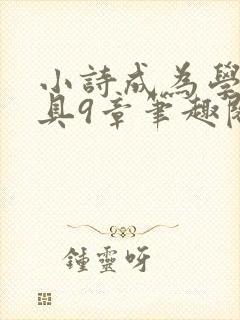 小詩成為學
具9章筆趣閣
鍾靈呀